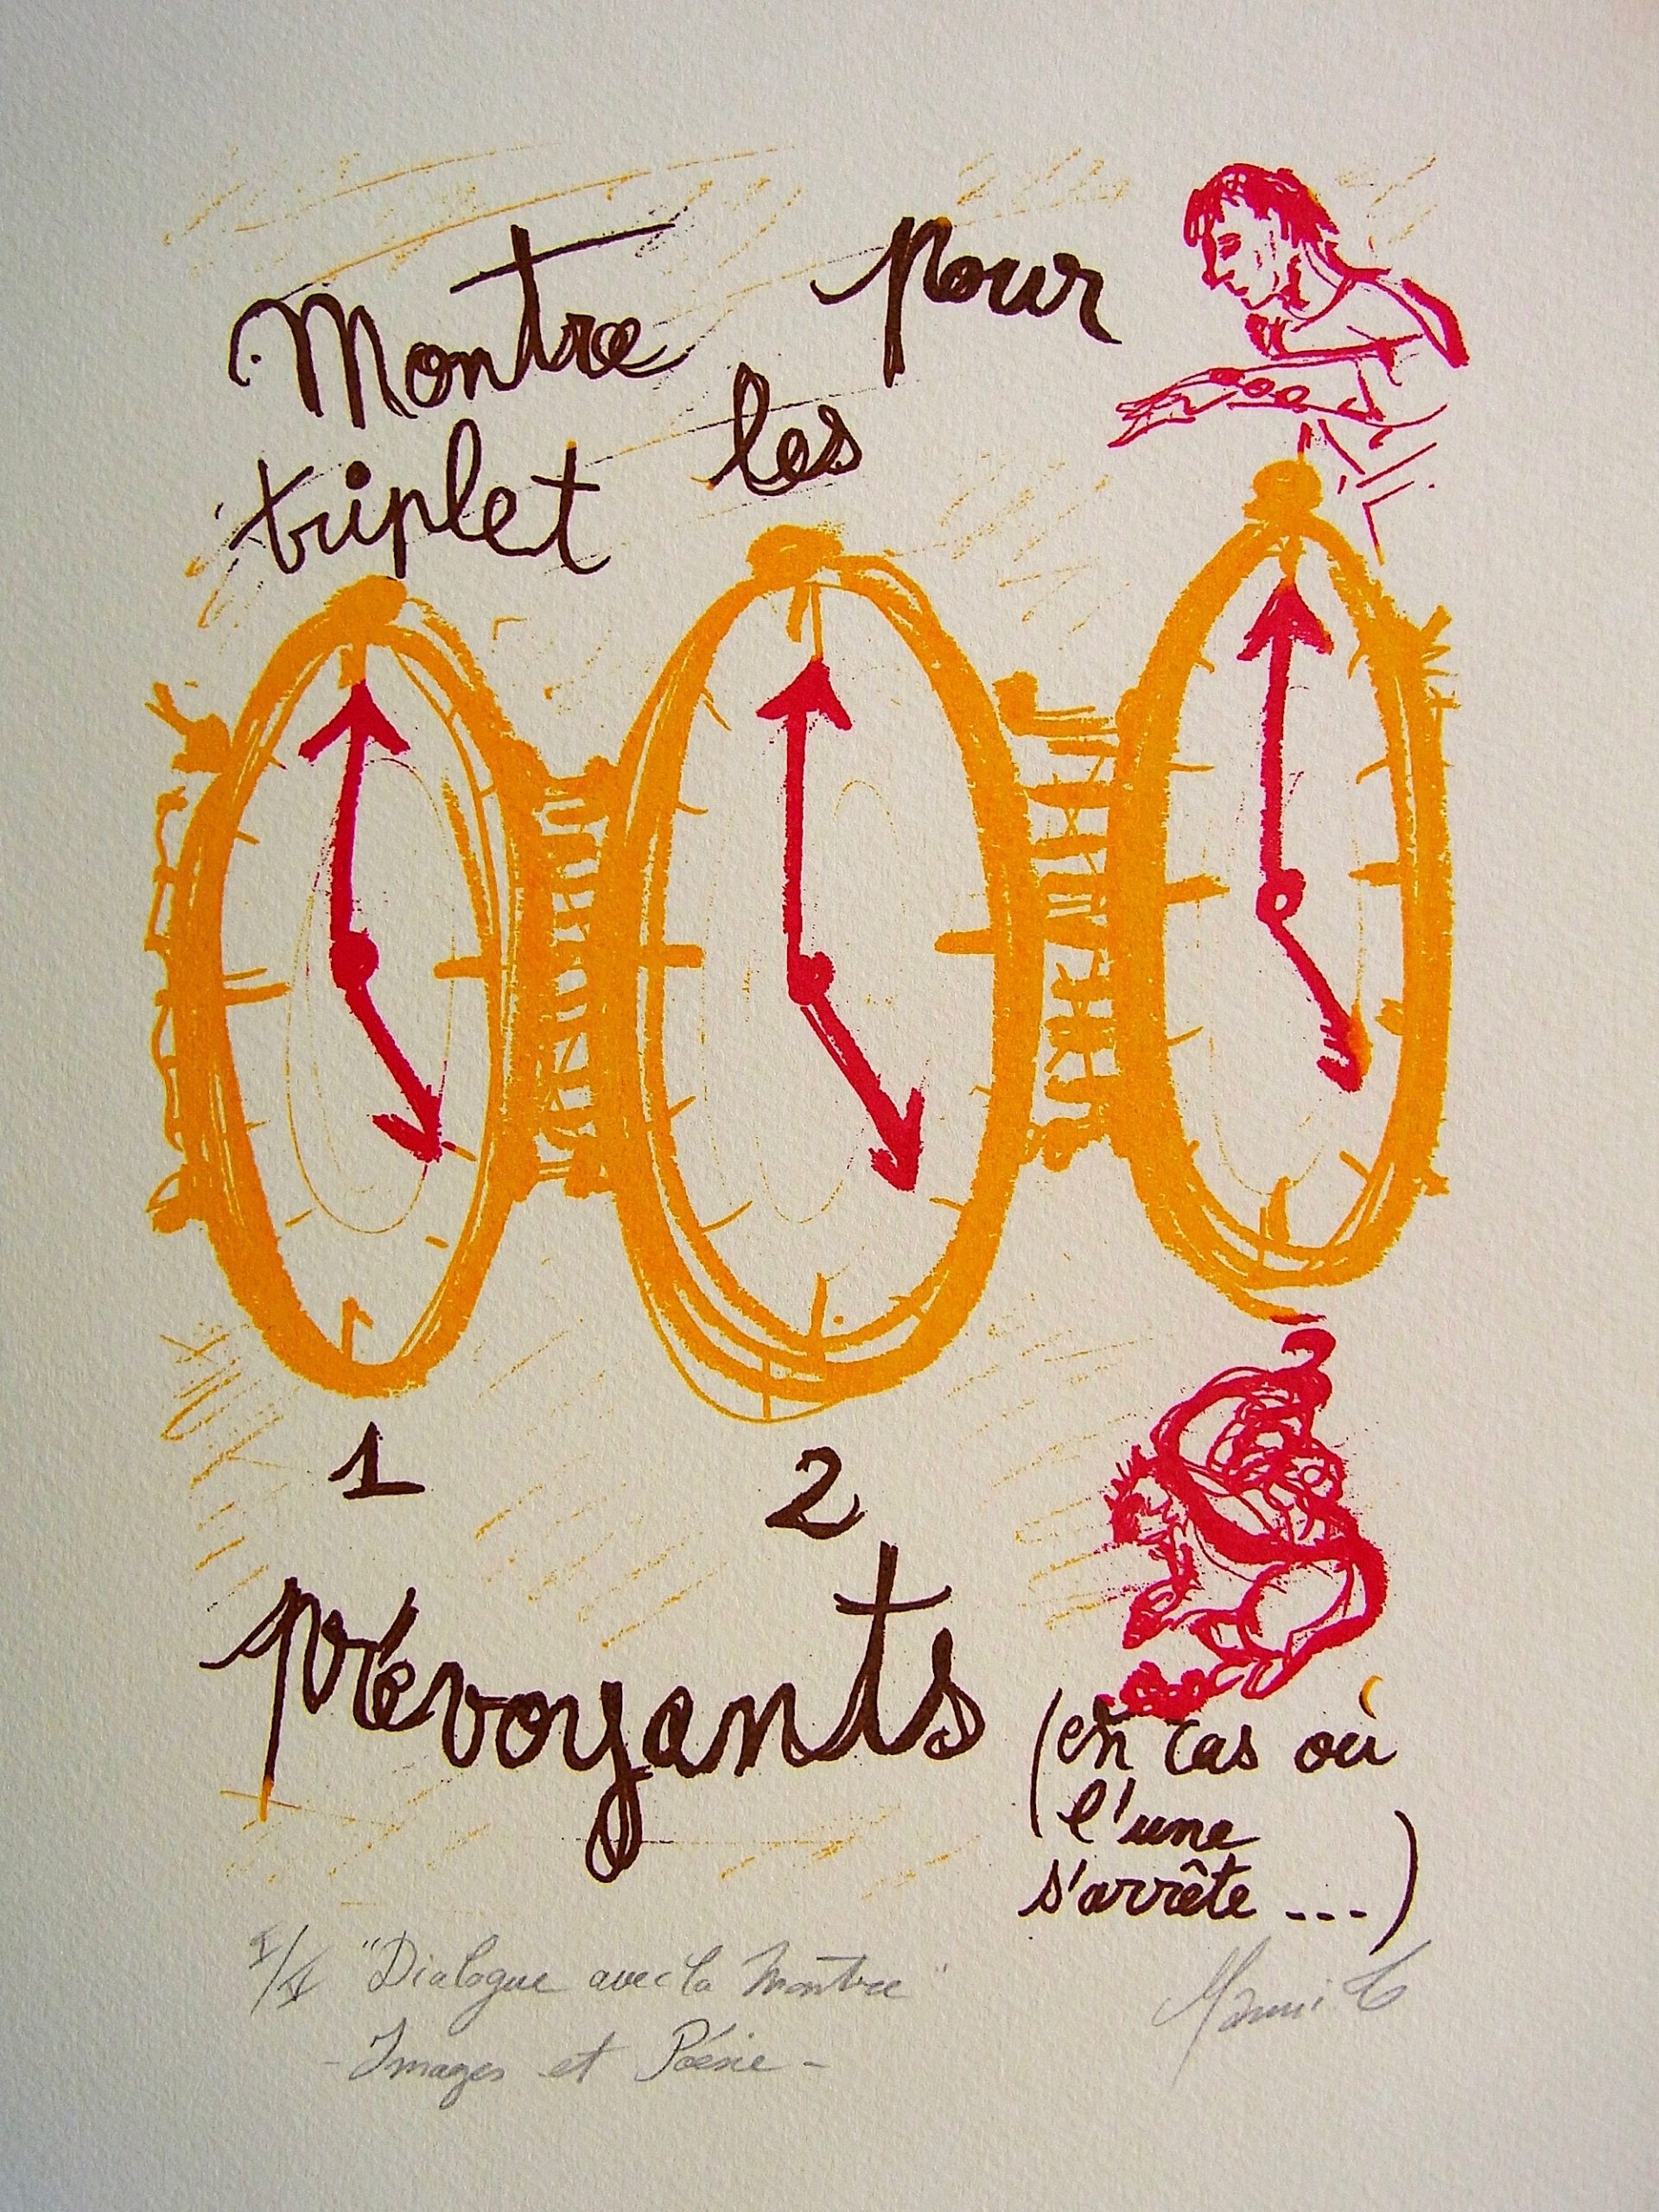 Montre pour
triplet les
1 2
prévoyants
(en cas où
l'une
s'arrête ...)
"Dialogue avec la Montre"
- Images et Poésie -